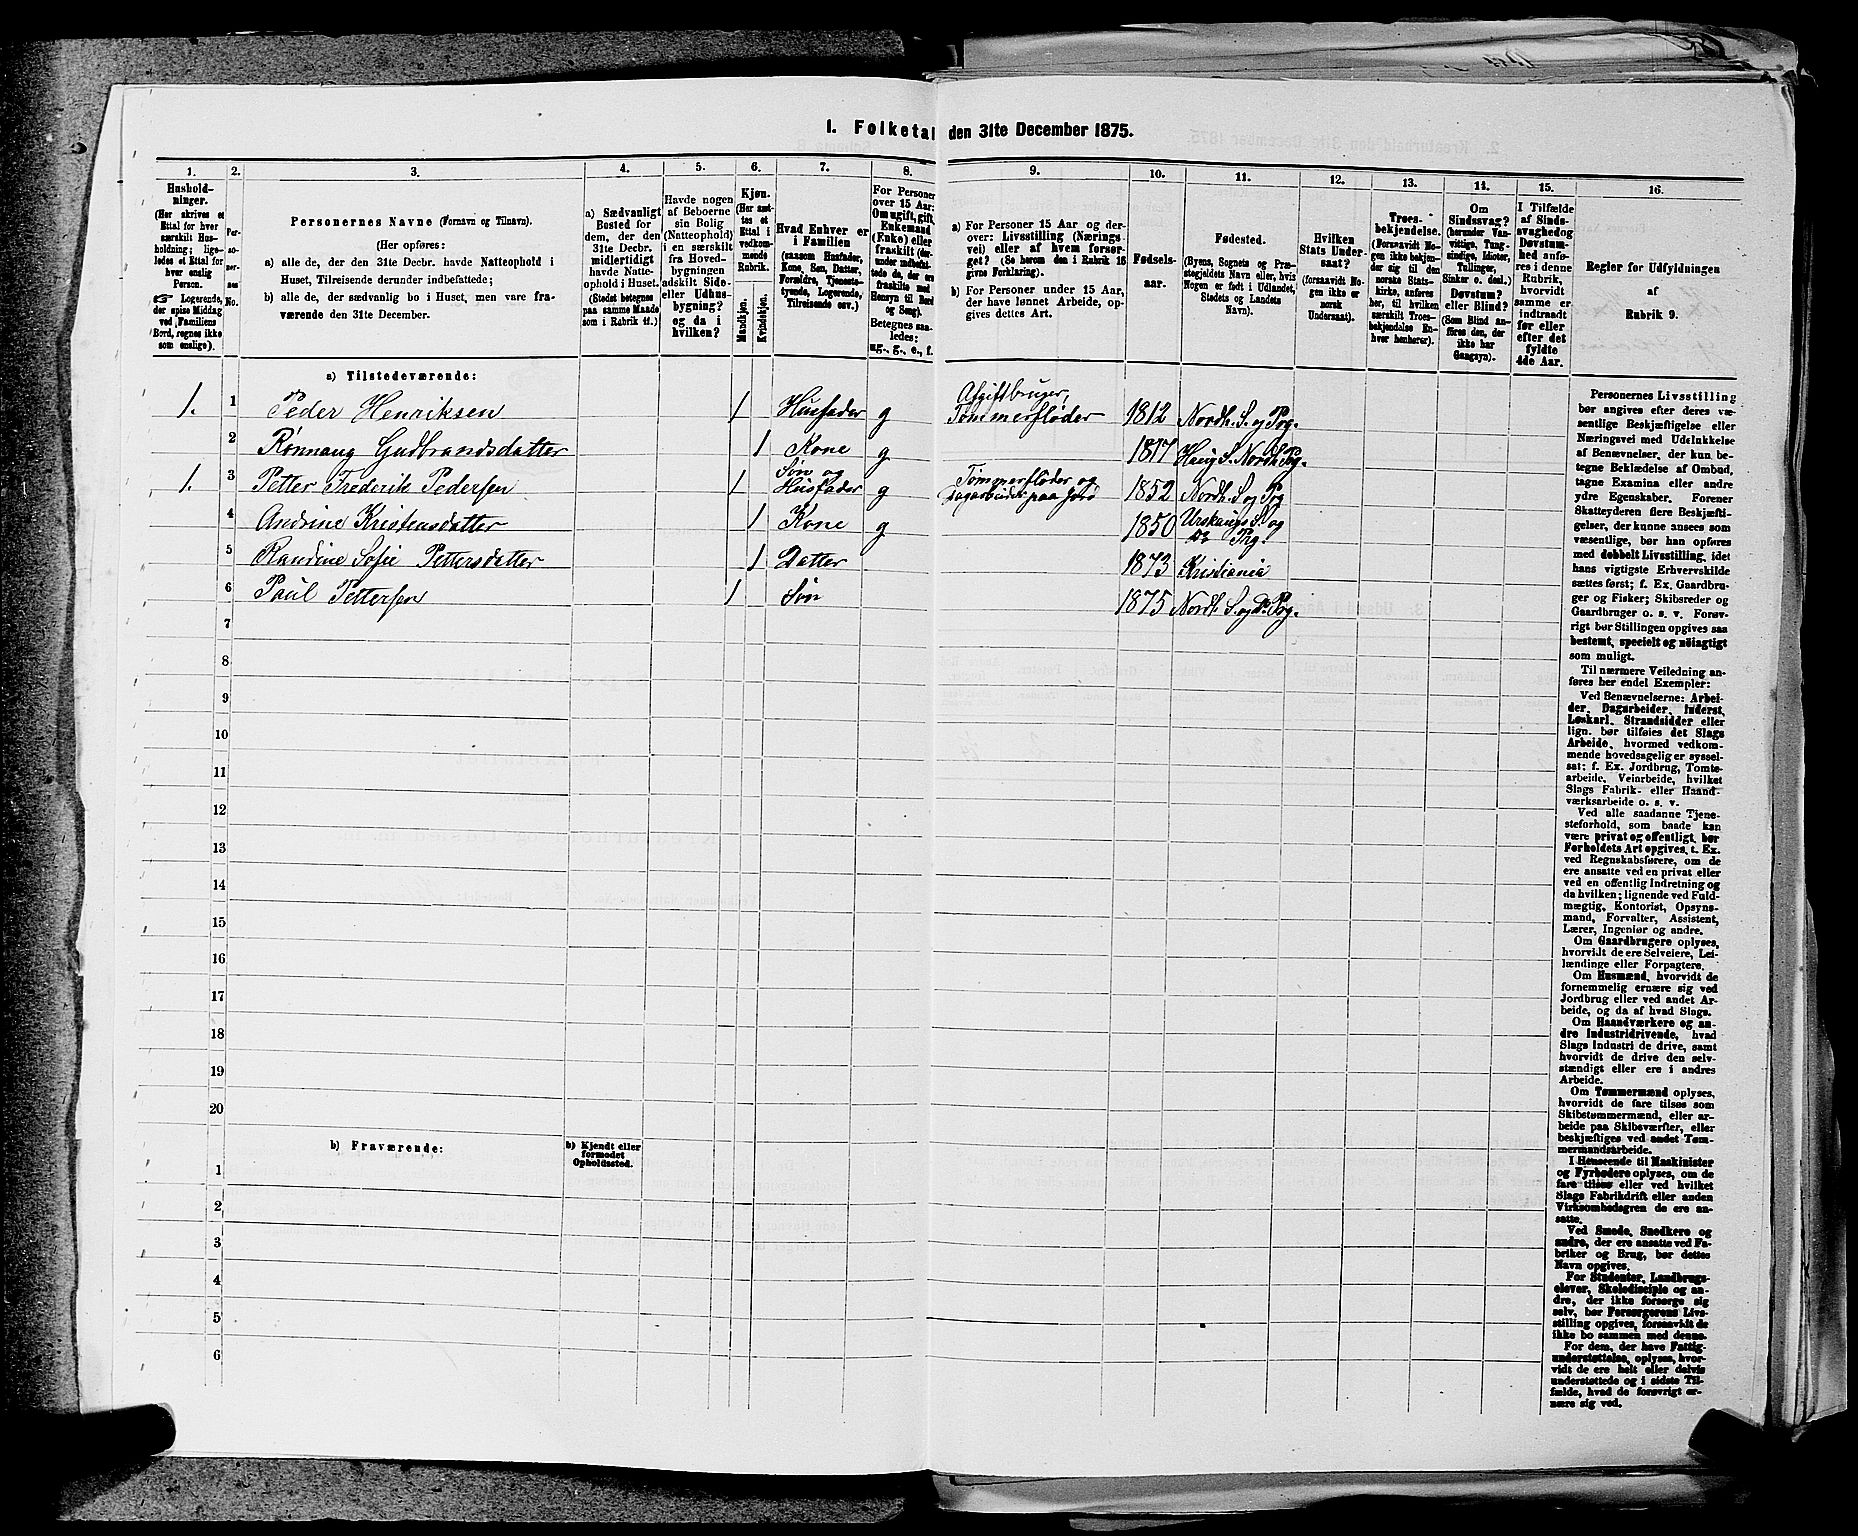 I. Folketal den 31te December 1875.
1.
Husholdninger.
(Her skrives et
Ettal for hver
særskilt Husholdning;
ligeledes et Ettal for
hver enslig
Person.
Logerende,
der spise Middag
ved Familiens
Bord, regnes ikke
som enslige).
2.
Personernes
No.
3.
Personernes Navne (Fornavn og Tilnavn).
(Her opføres:
a) alle de, der den 31te Decbr. havde Natteophold i
Huset, Tilreisende derunder indbefattede;
b) alle de, der sædvanlig bo i Huset, men vare fraværende
den 31te December.
4.
a) Sædvanligt
Bosted for
dem, der den
31te Decbr.
midlertidigt
havde Natteophold
i Huset.
(Stedet betegnes
paa samme Maade
som i Rubrik 11.)
5.
Havde nogen
af Beboerne
sin Bolig
(Natteophold)
i en særskilt
fra Hovedbygningen
adskilt Side-
eller Udhusbygning?
og da i
hvilken?
6.
Kjøn.
(Her sættes
et
Ettal i
vedkommende
Rubrik.
Mandkjøn.
Kvindekjøn.
7.
Hvad Enhver er
i Familien
(saasom Husfader,
Kone, Søn, Datter,
Forældre, Tjenestetyende,
Logerende,
Tilreisende osv.)
8.
For Personer
over 15 Aar:
Om ugift, gift,
Enkemand
(Enke) eller
fraskilt (derunder
indbefattede
de, der ere
fraskilte med
Hensyn til Bord
og Seng).
Betegnes saaledes:
ug., g., e., f.
9.
a) For Personer 15 Aar og derover:
Livsstilling (Næringsvei)
eller af hvem forsørget?
(Se herom den i Rubrik 16
givne Forklaring).
b) For Personer under 15 Aar,
der have lønnet Arbeide, opgives
dettes Art.
10.
Fødselsaar.
11.
Fødested.
(Byens, Sognets og Præstegjeldets
Navn, eller, hvis
Nogen er født i Udlandet,
Stedets og Landets
Navn).
12.
Hvilken
Stats Undersaat?
(forsaavidt Nogen
ikke er
norsk
Undersaat).
13.
Troesbekjendelse.
(Forsaavidt Nogen
ikke bekjender
sig til den
norske Statskirke,
anføres
her, til hvilken
særskilt Troesbekjendelse
Enhver
henhører).
14.
Om
Sindssvag?
(herunder Vanvittige,
Tungsindige,
Idioter,
Tullinger,
Sinker o. desl.)
Døvstum?
eller Blind?
(Som Blind anføres
den, der
ikke har
Gangsyn).
15.
I Tilfælde
af Sindssvaghed
og
Døvstumhed
anføres
i denne
Rubrik,
hvorvidt
samme er
indtraadt
før eller
efter det
fyldte
4de Aar.
16.
Regler for Udfyldningen
af
Rubrik 9.
a) Tilstedeværende:
1. 1 Peder Henriksen 1 Husfader g Afgiftbruger, Tømmerfløder 1812 Nordh. S. og Prg.
2 Rønnaug Gudbrandsdatter 1 Kone g 1817 Haug S. Nordh. Prg.
1. 3 Petter Frederik Pedersen 1 Søn og Husfader g Tømmerfløder og Dagarbeider paa Jord 1852 Nordh. S. og Prg
4 Andrine Kristensdatter 1 Kone g 1850 Urskougs S. og Do Prg.
5 Randine Sofie Pettersdatter 1 Datter 1873 Kristiania
6 Paul Pettersen 1 Søn 1875 Nordh. S. og Do Prg.
7
8
9
10
11
12
13
14
15
16
17
18
19
20
b) Fraværende:
b) Kjendt eller
formodet
Opholdssted.
1
2
3
4
5
6
Personernes Livsstilling
bør angives efter deres væsentlige
Beskjæftigelse eller
Næringsvei med Udelukkelse
af Benævnelser, der kun betegne
Beklædelse af Ombud,
tagne Examina eller andre
ydre Egenskaber. Forener
Skatteyderen flere Beskjæftigelser,
der kunne ansees som
væsentlige, bør han opføres
med dobbelt Livsstilling, idet
hans vigtigste Erhvervskilde
sættes først; f. Ex. Gaardbruger
og Fisker; Skibsreder og
Gaardbruger o. s. v. Forøvrigt
bør Stillingen opgives saa
bestemt, specielt og nøiagtigt
som muligt.
Til nærmere Veiledning anføres
her endel Exempler:
Ved Benævnelserne: Arbeider,
Dagarbeider, Inderst,
Løskarl, Strandsidder eller
lign. bør tilføies det Slags
Arbeide, hvormed vedkommende
hovedsagelig er sysselsat;
f. Ex. Jordbrug, Tomtearbeide,
Veiarbeide, hvilket
Slags Fabrik- eller Haandværksarbeide
o. s. v.
Ved alle saadanne Tjenesteforhold,
som baade kan
være privat og offentligt, bør
Forholdets Art opgives, t. Ex.
ved Regnskabsførere, om de
ere ansatte ved en privat eller
ved en offentlig Indretning og
da hvilken; lignende ved Fuldmægtig,
Kontorist, Opsynsmand,
Forvalter, Assistent,
Lærer, Ingeniør og andre.
Om Gaardbrugere oplyses,
hvorvidt de ere Selveiere, Leilændinge
eller Forpagtere.
Om Husmænd, hvorvidt de
fornemmelig ernære sig ved
Jordbrug eller ved andet Arbeide,
og da af hvad Slags.
Om Haandværkere og andre
Industridrivende, hvad
Slags Industri de drive, samt
hvorvidt de drive den selvstændigt
eller ere i andres
Arbeide.
Om Tømmermænd oplyses,
hvorvidt de fare tilsøs som
Skibstømmermænd, eller arbeide
paa Skibsværfter, eller
beskjæftiges ved andet Tømmermandsarbeide.
I Henseende til Maskinister
og Fyrbødere oplyses, om de
fare tilsøs eller ved hvilket
Slags Fabrikdrift eller anden
Virksomhedsgren de ere ansatte.
Ved Smede, Snedkere og
andre, der ere ansatte ved Fabriker
og Brug, bør dettes
Navn opgives.
For Studenter, Landbrugselever,
Skoledisciple og andre,
der ikke forsørge sig
selv, bør Forsørgerens Livsstilling
opgives, forsaavidt de
ikke bo sammen med denne.
For dem, der have Fattigunderstøttelse,
oplyses, hvorvidt
de ere helt eller delvis
understøttede og i sidste Tilfælde,
hvad de forøvrigt ernære
sig ved.